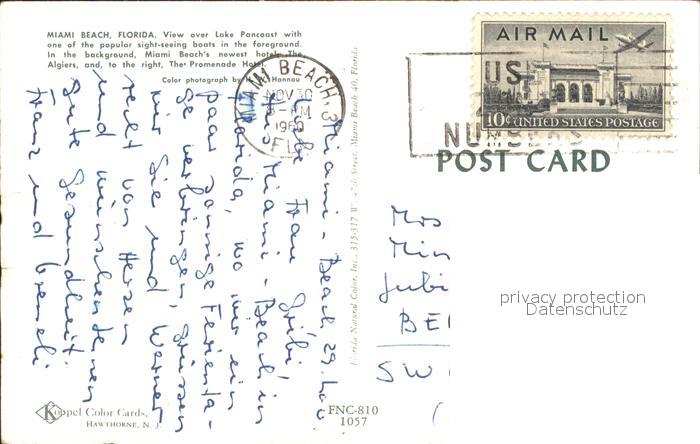 MIAMI BEACH, FLORIDA. View over Lake Pancoast with
one of the popular sight-seeing boats in the foreground.
In the background, Miami Beach's newest hotels, The
Algiers, and, to the right, The Promenade Hotel.
Color photograph by Hannau
MIAMI BEACH, 
NOV 30
PM
1960
FLA
AIR MAIL
10¢ UNITED STATES POSTAGE
US
NUMBERS
POST CARD
Miami-Beach, 29.
Liebe Frau
Aus Miami-Beach in
Florida, wo wir ein
paar sonnige Ferienta-
ge verbringen, grüssen
wir Sie und Werner
recht von Herzen
und wünschen Ihnen
gute Gesundheit.
Franz und
Florida Natural Color, Inc., 315-317 W. 47th Street, Miami Beach 40, Florida
Mrs
Min
Jubi
BE
SW
privacy protection
Datenschutz
K
Koppel Color Cards,
HAWTHORNE, N. J.
FNC-810
1057